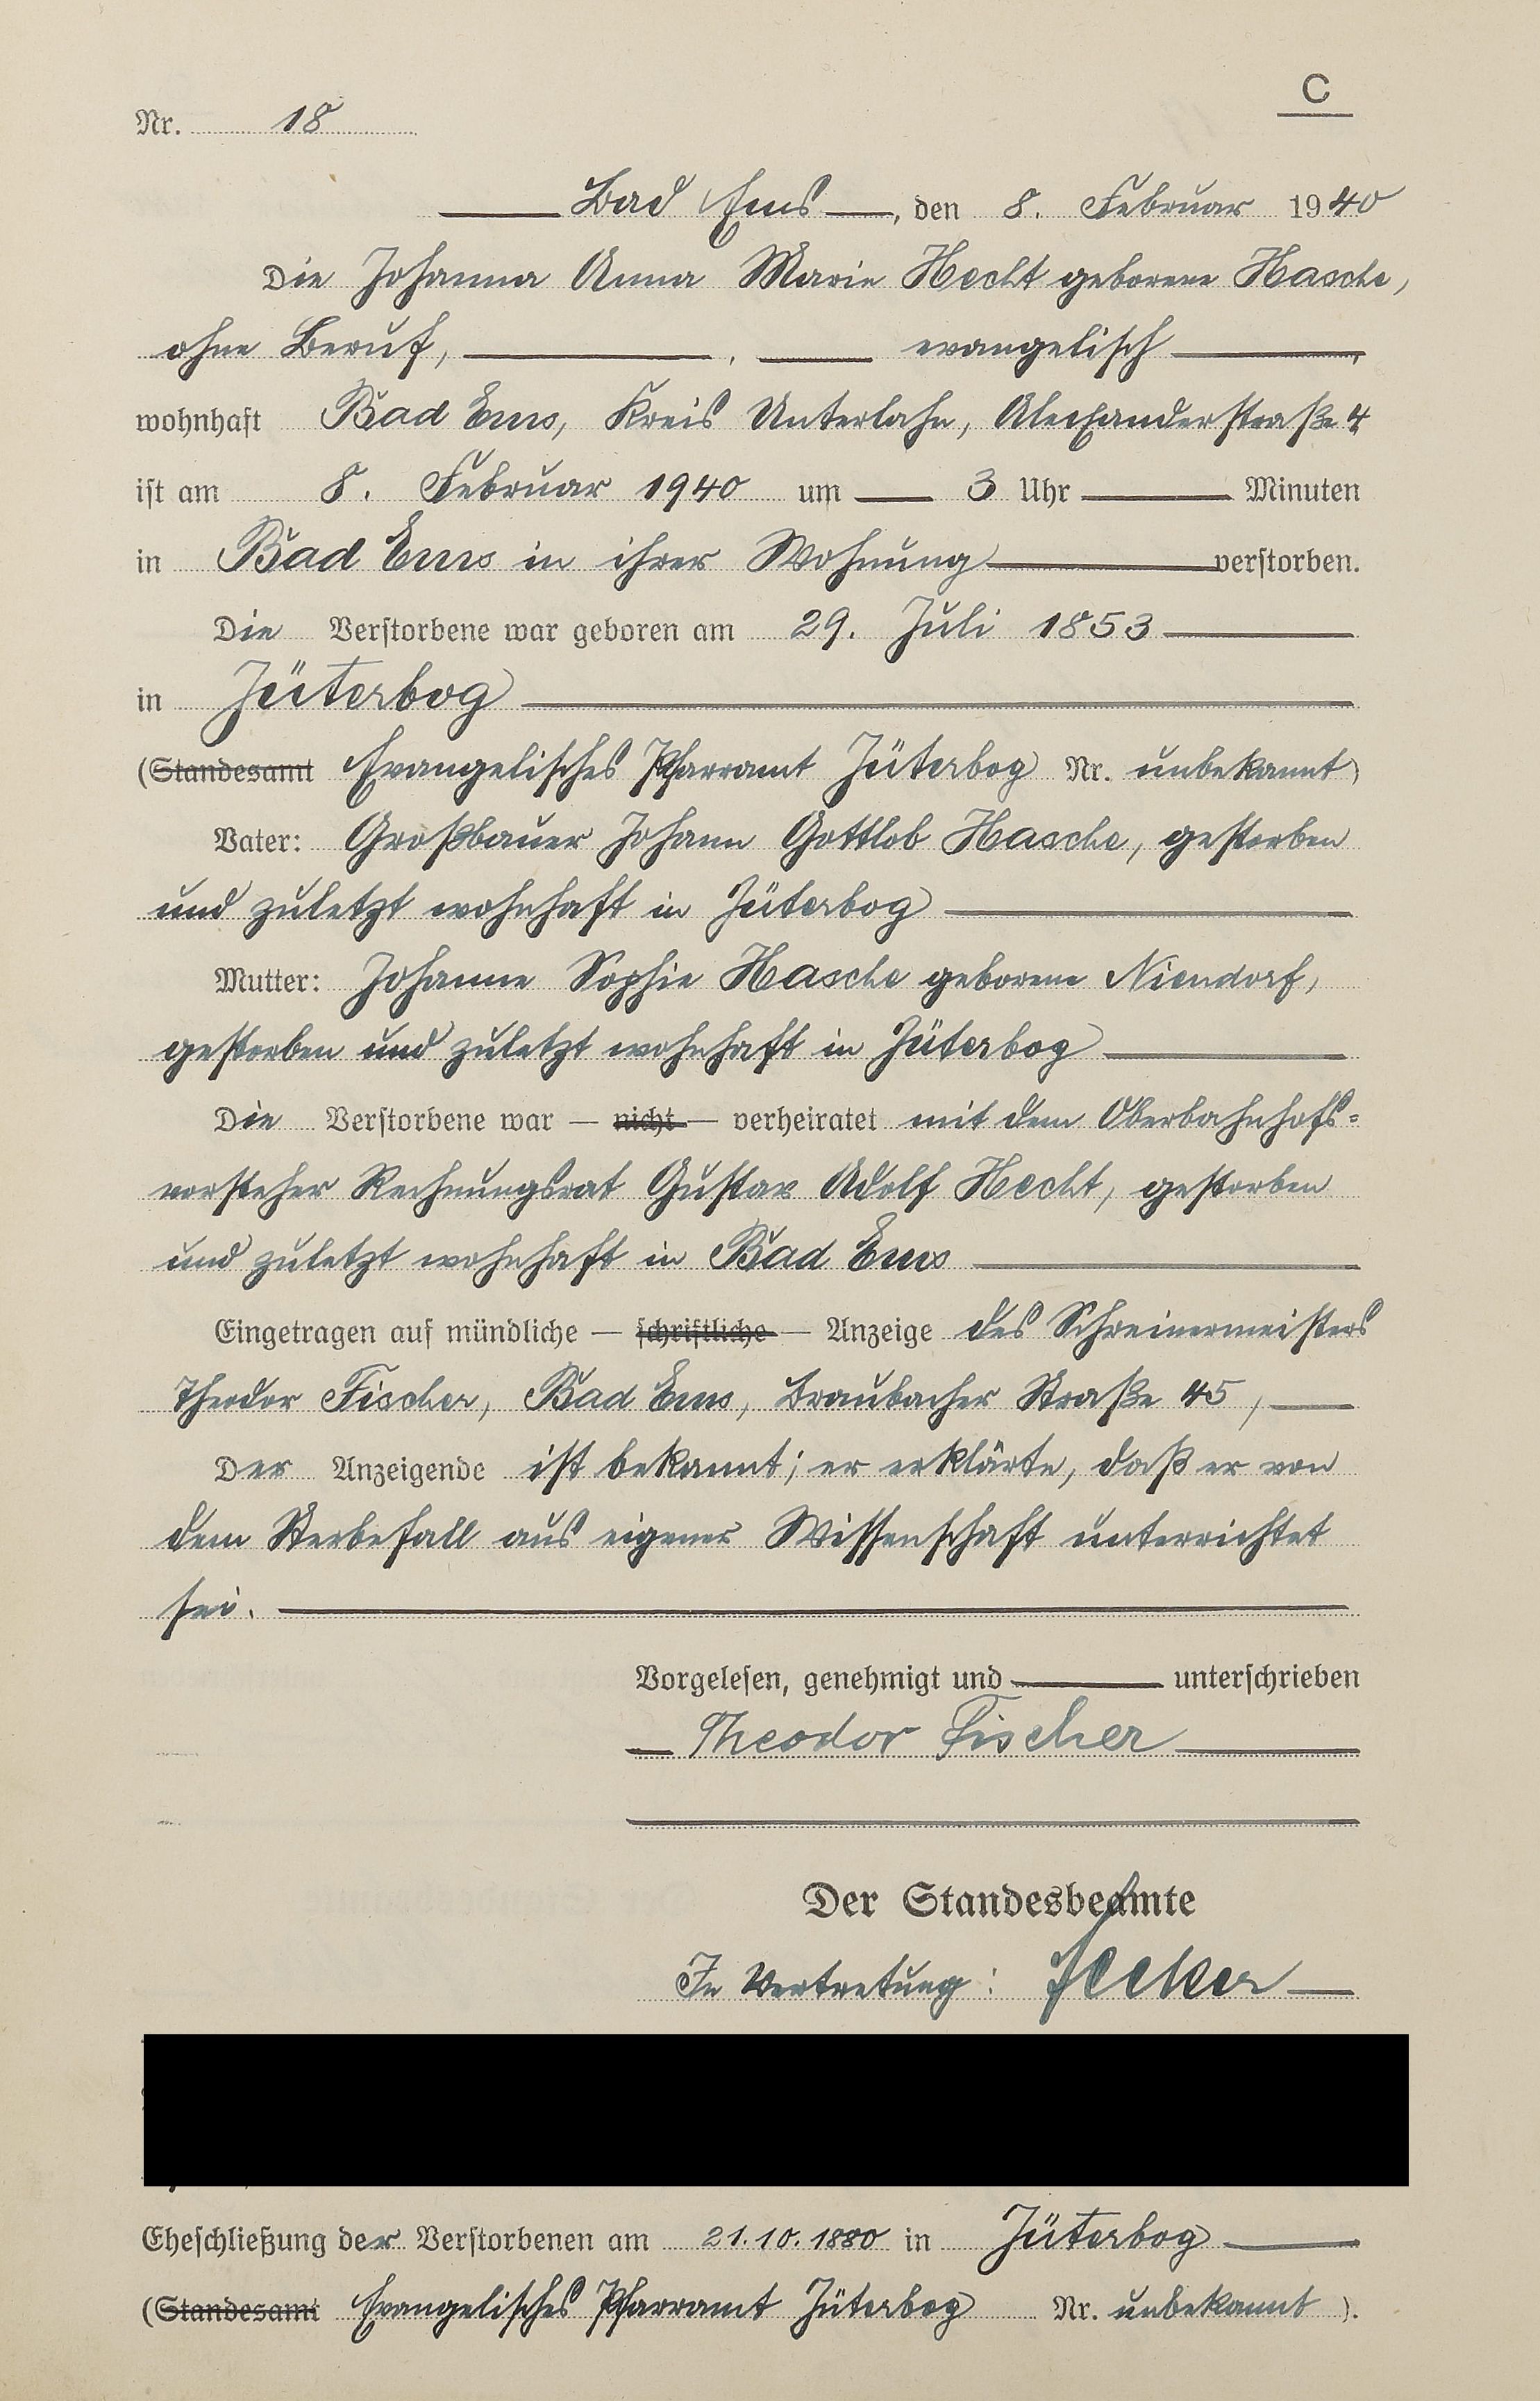 C
Nr. 18
Bad Ems, den 8. Februar 1940
Die Johanna Anna Marie Hecht geborene Hasche,
ohne Beruf, , evangelisch,
wohnhaft Bad Ems, Kreis Unterlahn, Alexanderstraße 4
ist am 8. Februar 1940 um 3 Uhr Minuten
in Bad Ems in ihrer Wohnung verstorben.
Die Verstorbene war geboren am 29. Juli 1853
in Jüterbog
(Standesamt Evangelisches Pfarramt Jüterbog Nr. unbekannt)
Vater: Großbauer Johann Gottlob Hasche, gestorben
und zuletzt wohnhaft in Jüterbog
Mutter: Johanne Sophie Hasche geborene Niendorf,
gestorben und zuletzt wohnhaft in Jüterbog
Die Verstorbene war — nicht — verheiratet mit dem Oberbahnhofs-
vorsteher Rechnungsrat Gustav Adolf Hecht, gestorben
und zuletzt wohnhaft in Bad Ems
Eingetragen auf mündliche — schriftliche — Anzeige des Schreinermeisters
Theodor Fischer, Bad Ems, Braubacher Straße 45,
Der Anzeigende ist bekannt; er erklärte, daß er von
dem Sterbefall aus eigener Wissenschaft unterrichtet
sei.
Vorgelesen, genehmigt und unterschrieben
Theodor Fischer
Der Standesbeamte
In Vertretung:
Eheschließung der Verstorbenen am 21.10.1880 in Jüterbog
(Standesamt Evangelisches Pfarramt Jüterbog Nr. unbekannt).